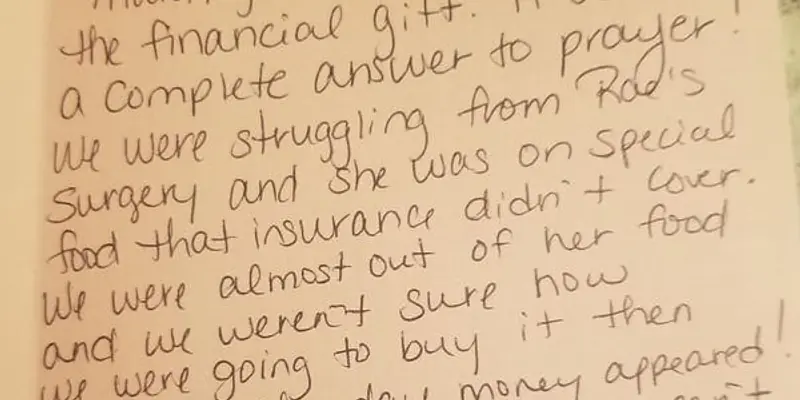 the financial gift.
a complete answer to prayer!
We were struggling from Rae's
Surgery and she was on special
food that insurance didn't cover.
We were almost out of her food
and we weren't sure how
we were going to buy it then
money appeared!